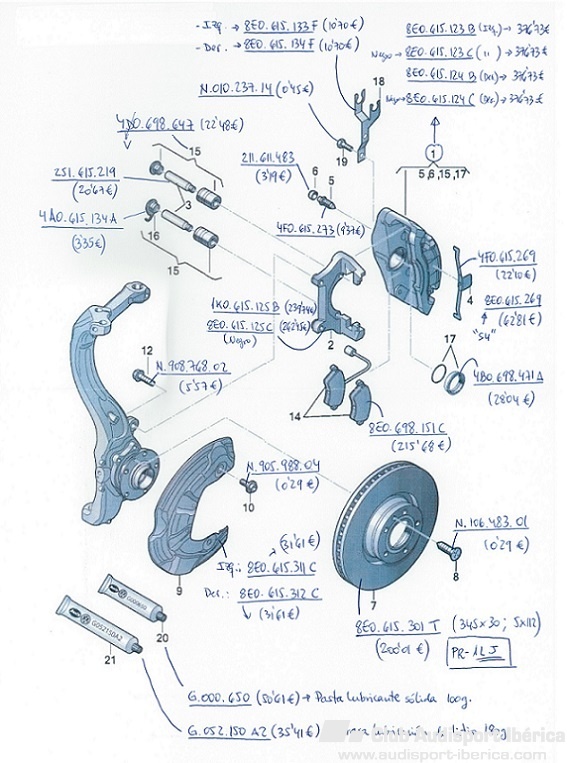 - Izq. → 8E0.615.133 F (10'70€)
- Der. → 8E0.615.134 F (10'70€)
8E0.615.123 B (Izq.) → 376'73€
Negro → 8E0.615.123 C ( " ) → 376'73€
8E0.615.124 B (Der.) → 376'73€
Negro → 8E0.615.124 C (Der.) → 376'73€
N.010.237.14 (0'45€)
18
4D0.698.647 (22'48€)
19
1
5,6,15,17
15
2S1.615.219
(20'67€)
3
211.611.483
(3'19€)
6
5
4F0.615.273 (9'37€)
4A0.615.134A
(3'35€)
16
15
4F0.615.269
(22'10€)
4
8E0.615.269
(62'81€)
"S4"
1K0.615.125B (239'74€)
8E0.615.125C (262'45€)
(Negro)
2
12
N.908.768.02
(5'57€)
17
4B0.698.471A
(28'04€)
14
8E0.698.151C
(215'68€)
N.905.988.04
(0'29€)
10
N.106.483.01
(0'29€)
8
9
(31'61€)
Izq.: 8E0.615.311C
Der.: 8E0.615.312C
(31'61€)
7
8E0.615.301 T (345x30; 5x112)
(200'01€)
PR-1LJ
G000650
20
G052150A2
21
G.000.650 (50'61€) → Pasta lubricante sólida 100g.
G.052.150 A2 (35'41€)
Club Audisport-Ibérica
www.audisport-iberica.com